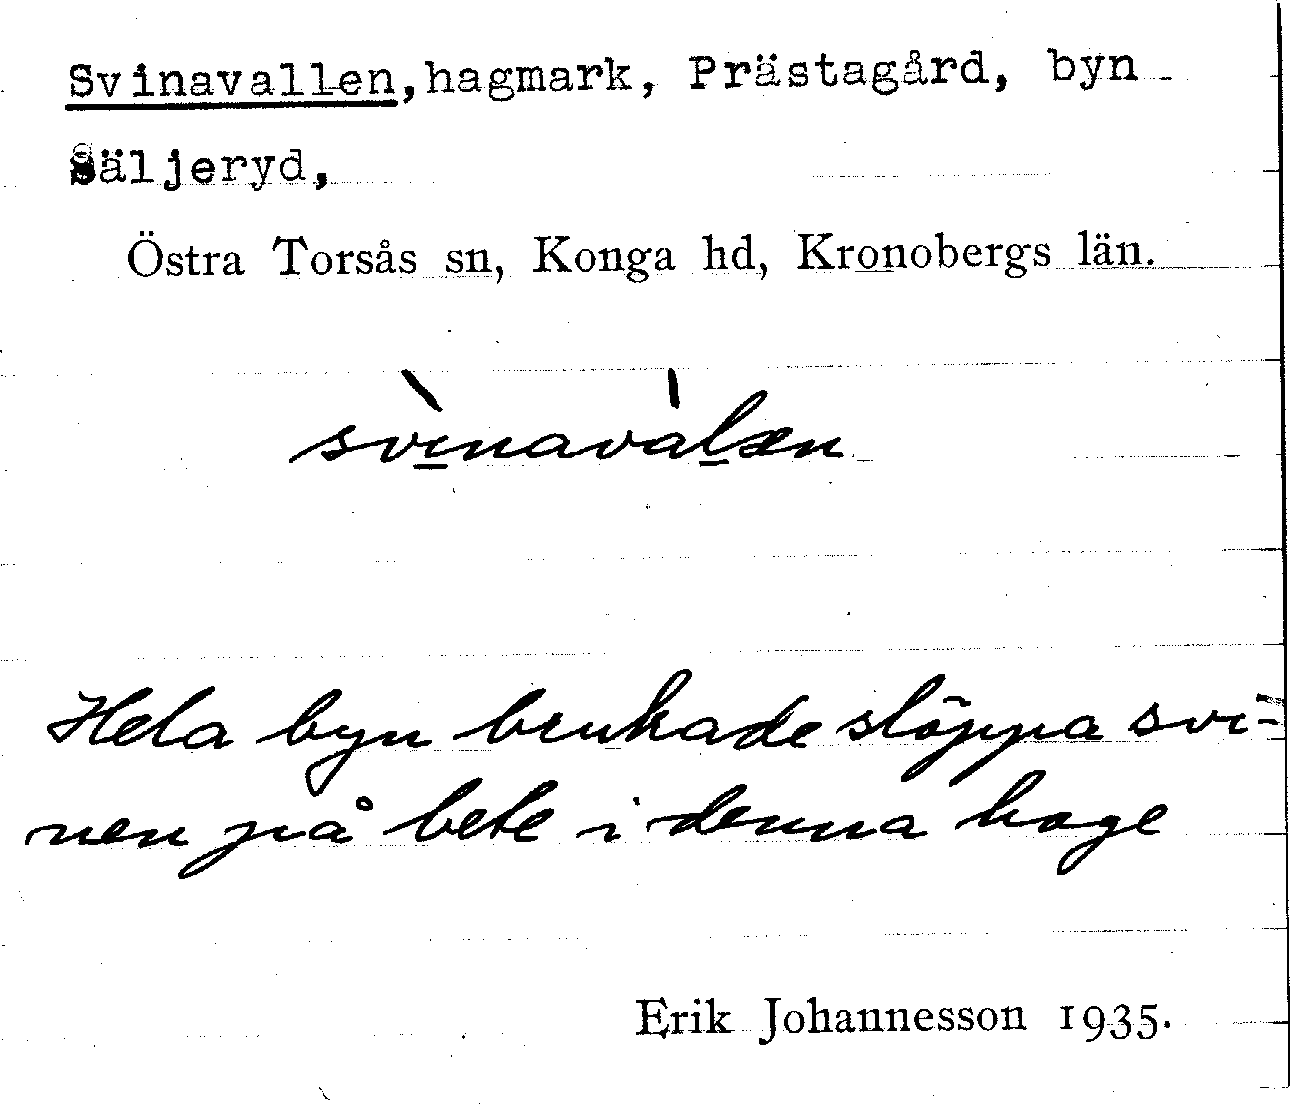 Svinavallen, hagmark, Prästagård, byn
Säljeryd,
Östra Torsås sn, Konga hd, Kronobergs län.
svì̲naval̲̀æn
Hela byn brukade släppa svi-
nen på bete i denna hage
Erik Johannesson 1935.